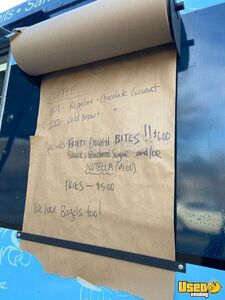 COFFEE
HOT - Regular - Chocolate Coconut
ICED - Cold Brew " "
Specials: FRIED DOUGH BITES !! $6.00
Sauce, Powdered Sugar and/or
NUTELLA ($1.00)
FRIES — $5.00
We have Bagels too!
UsedVending